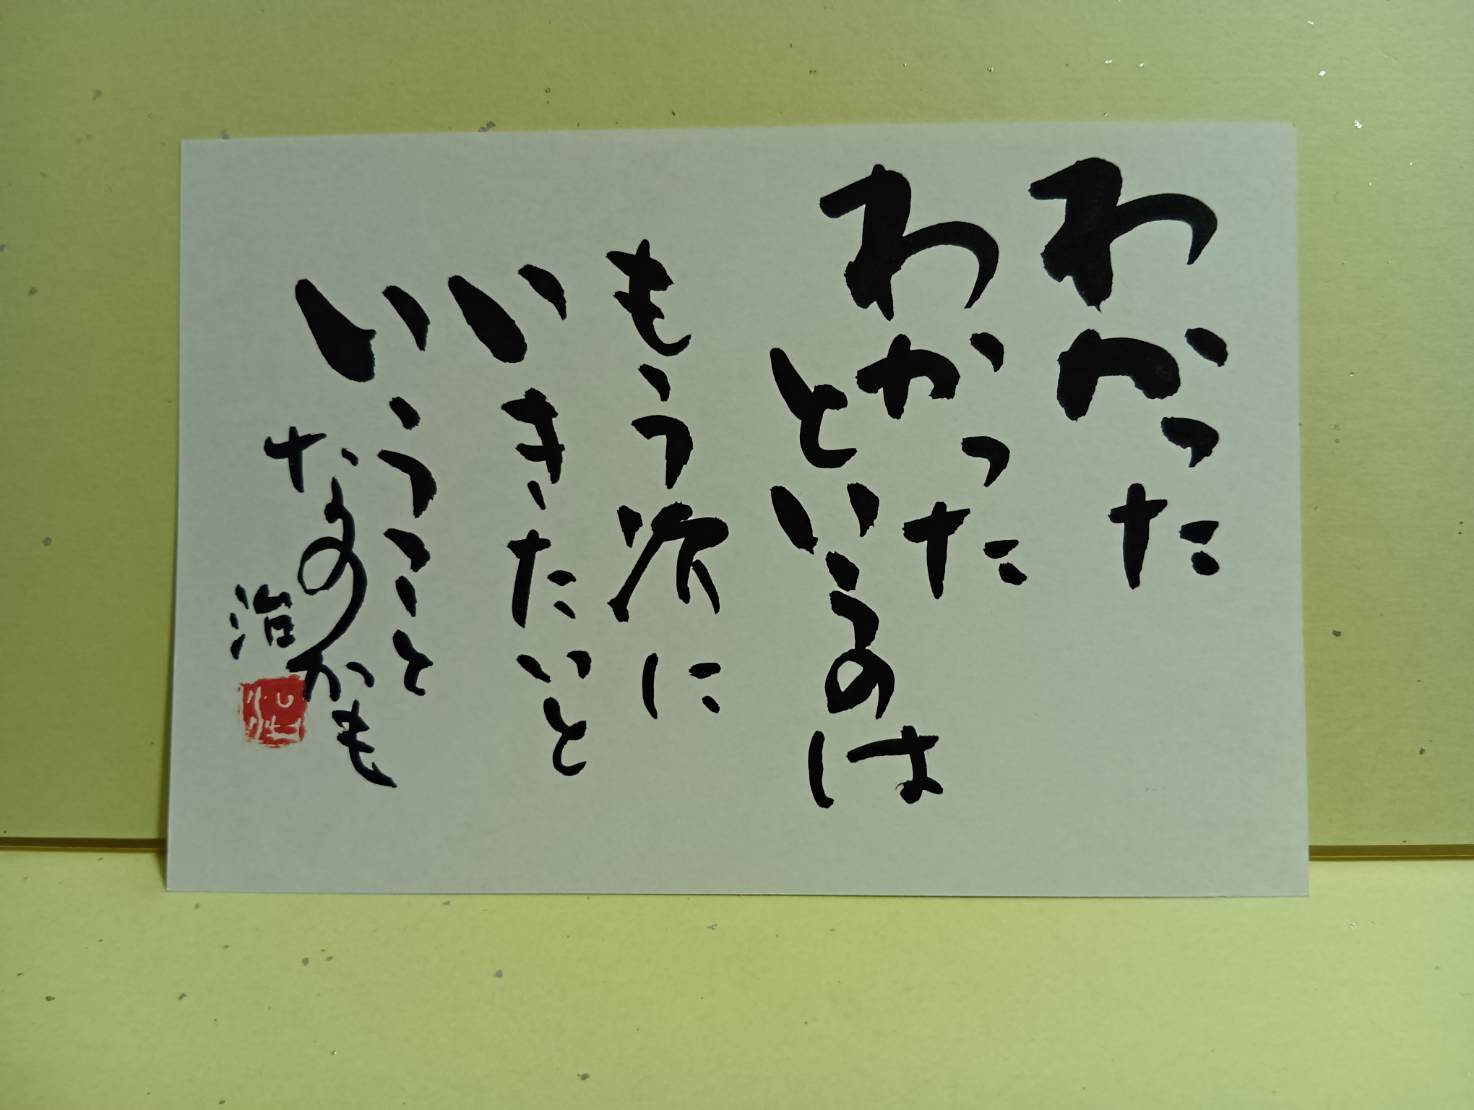 わかった
わかった
というのは
もう次に
いきたいと
いうこと
なのかも
治